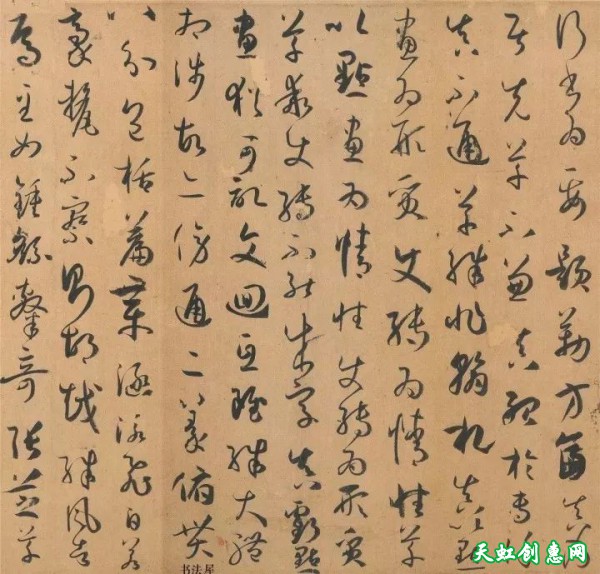 行書為要題勒方畐真乃
居先草不兼真殆於專謹
真不通草殊非翰札真以點
畫為形質使轉為情性草
以點畫為情性使轉為形質
草乖使轉不能成字真虧點
畫猶可記文迴互雖殊大體
相涉故亦傍通二篆俯貫
八分包括篇章涵泳飛白若
豪釐不察則胡越殊風者
焉至如鍾繇隸奇張芝草
书法屋
天虹创惠网